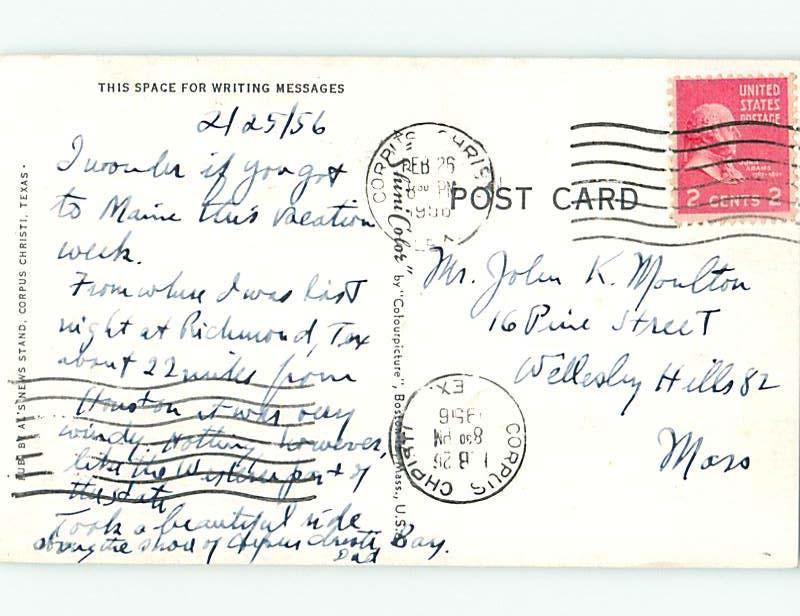 THIS SPACE FOR WRITING MESSAGES
2/25/56
I wonder if you got
to Maine this vacation
week.
From where I was last
night at Richmond, Tex
about 22 miles from
Houston it was very
windy. Nothing, however,
like the Western part of
the state
Took a beautiful ride
along the shore of Corpus Christi Bay.
Dad
PUB. BY AL'S NEWS STAND, CORPUS CHRISTI, TEXAS
"ShiniColor" by "Colourpicture", Boston, Mass., U.S.A.
CORPUS CHRISTI
FEB 26
8 30 PM
1956
TEX.
POST CARD
UNITED
STATES
POSTAGE
JOHN
ADAMS
2 CENTS 2
Mr. John K. Moulton
16 Pine Street
Wellesley Hills 82
Mass
CORPUS CHRISTI
FEB 26
8 30 PM
1956
TEX.